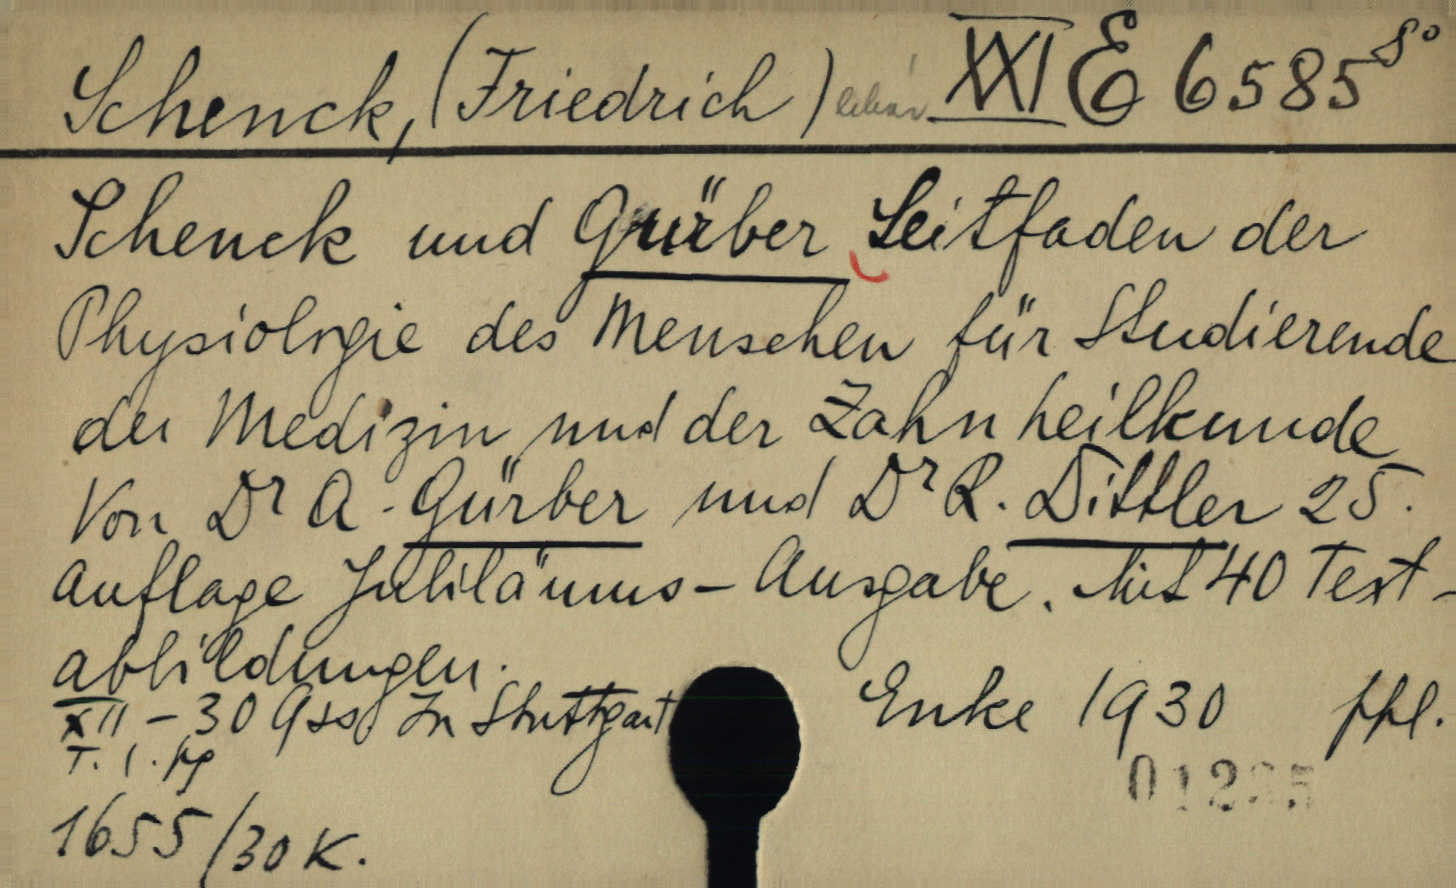 Schenck, (Friedrich) XXI E 6585 8°
Schenck und Gürber Leitfaden der
Physiologie des Menschen für Studierende
der Medizin und der Zahnheilkunde
Von Dr A. Gürber und Dr R. Dittler 25.
Auflage Jubiläums-Ausgabe. Mit 40 Text-
abbildungen.
In Stuttgart Enke 1930 ppl.
T. 1.
1655/30 K.